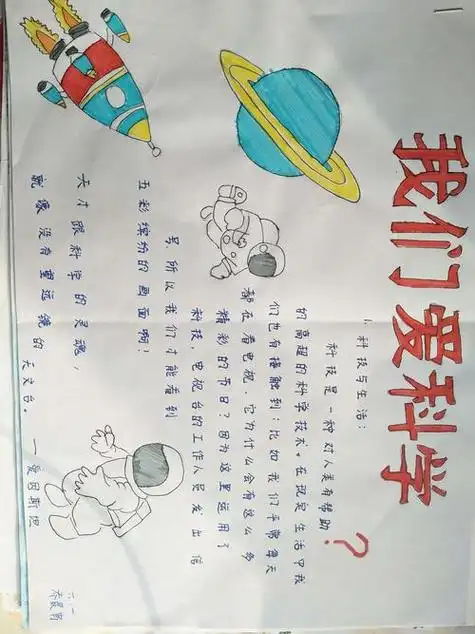 我们爱科学
?
1. 科技与生活:
科技是一种对人类有帮助
的高超的科学技术。在现实生活中我
们也有接触到:比如我们平常每天
都在看电视,它为什么会有这么多
精彩的节目?因为这里运用了
科技,电视台的工作人员发出信
号,所以我们才能看到
五彩缤纷的画面啊!
天才跟科学的灵魂,
就像没有望远镜的天文台。
—爱因斯坦